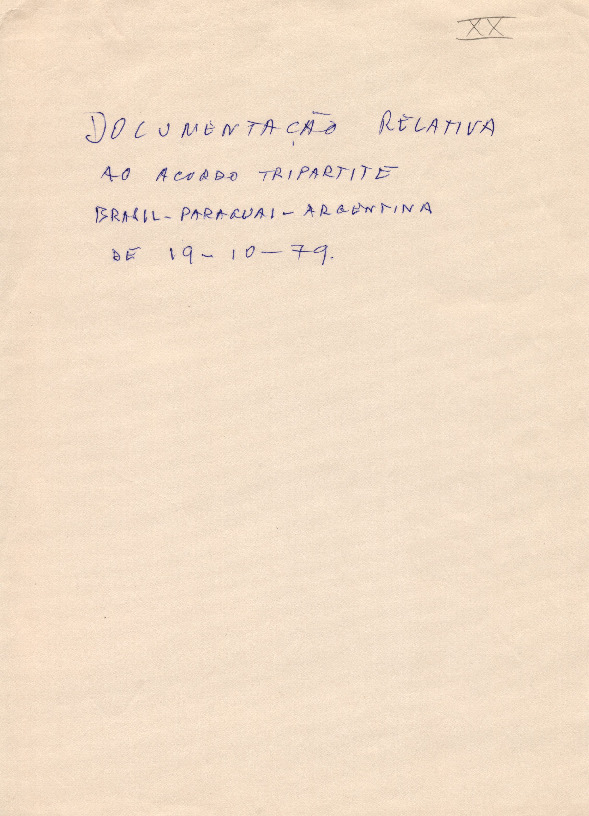 XX
DOCUMENTAÇÃO RELATIVA
AO ACORDO TRIPARTITE
BRASIL-PARAGUAI-ARGENTINA
DE 19-10-79.